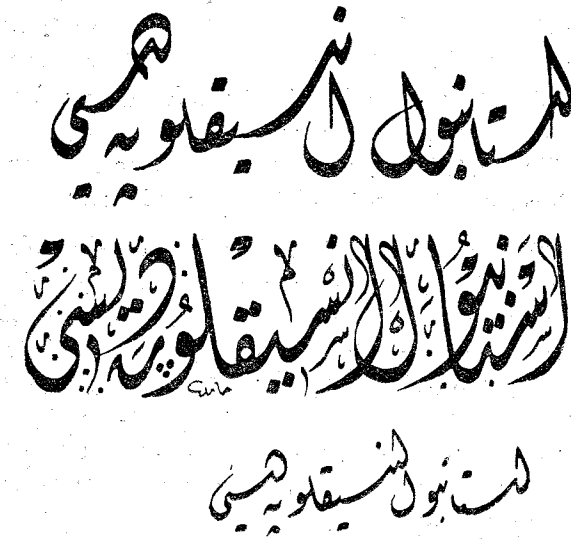 استانبول انسيقلوپه ديسى
استانبول انسيقلوپه ديسى
حامد
استانبول انسيقلوپه ديسى